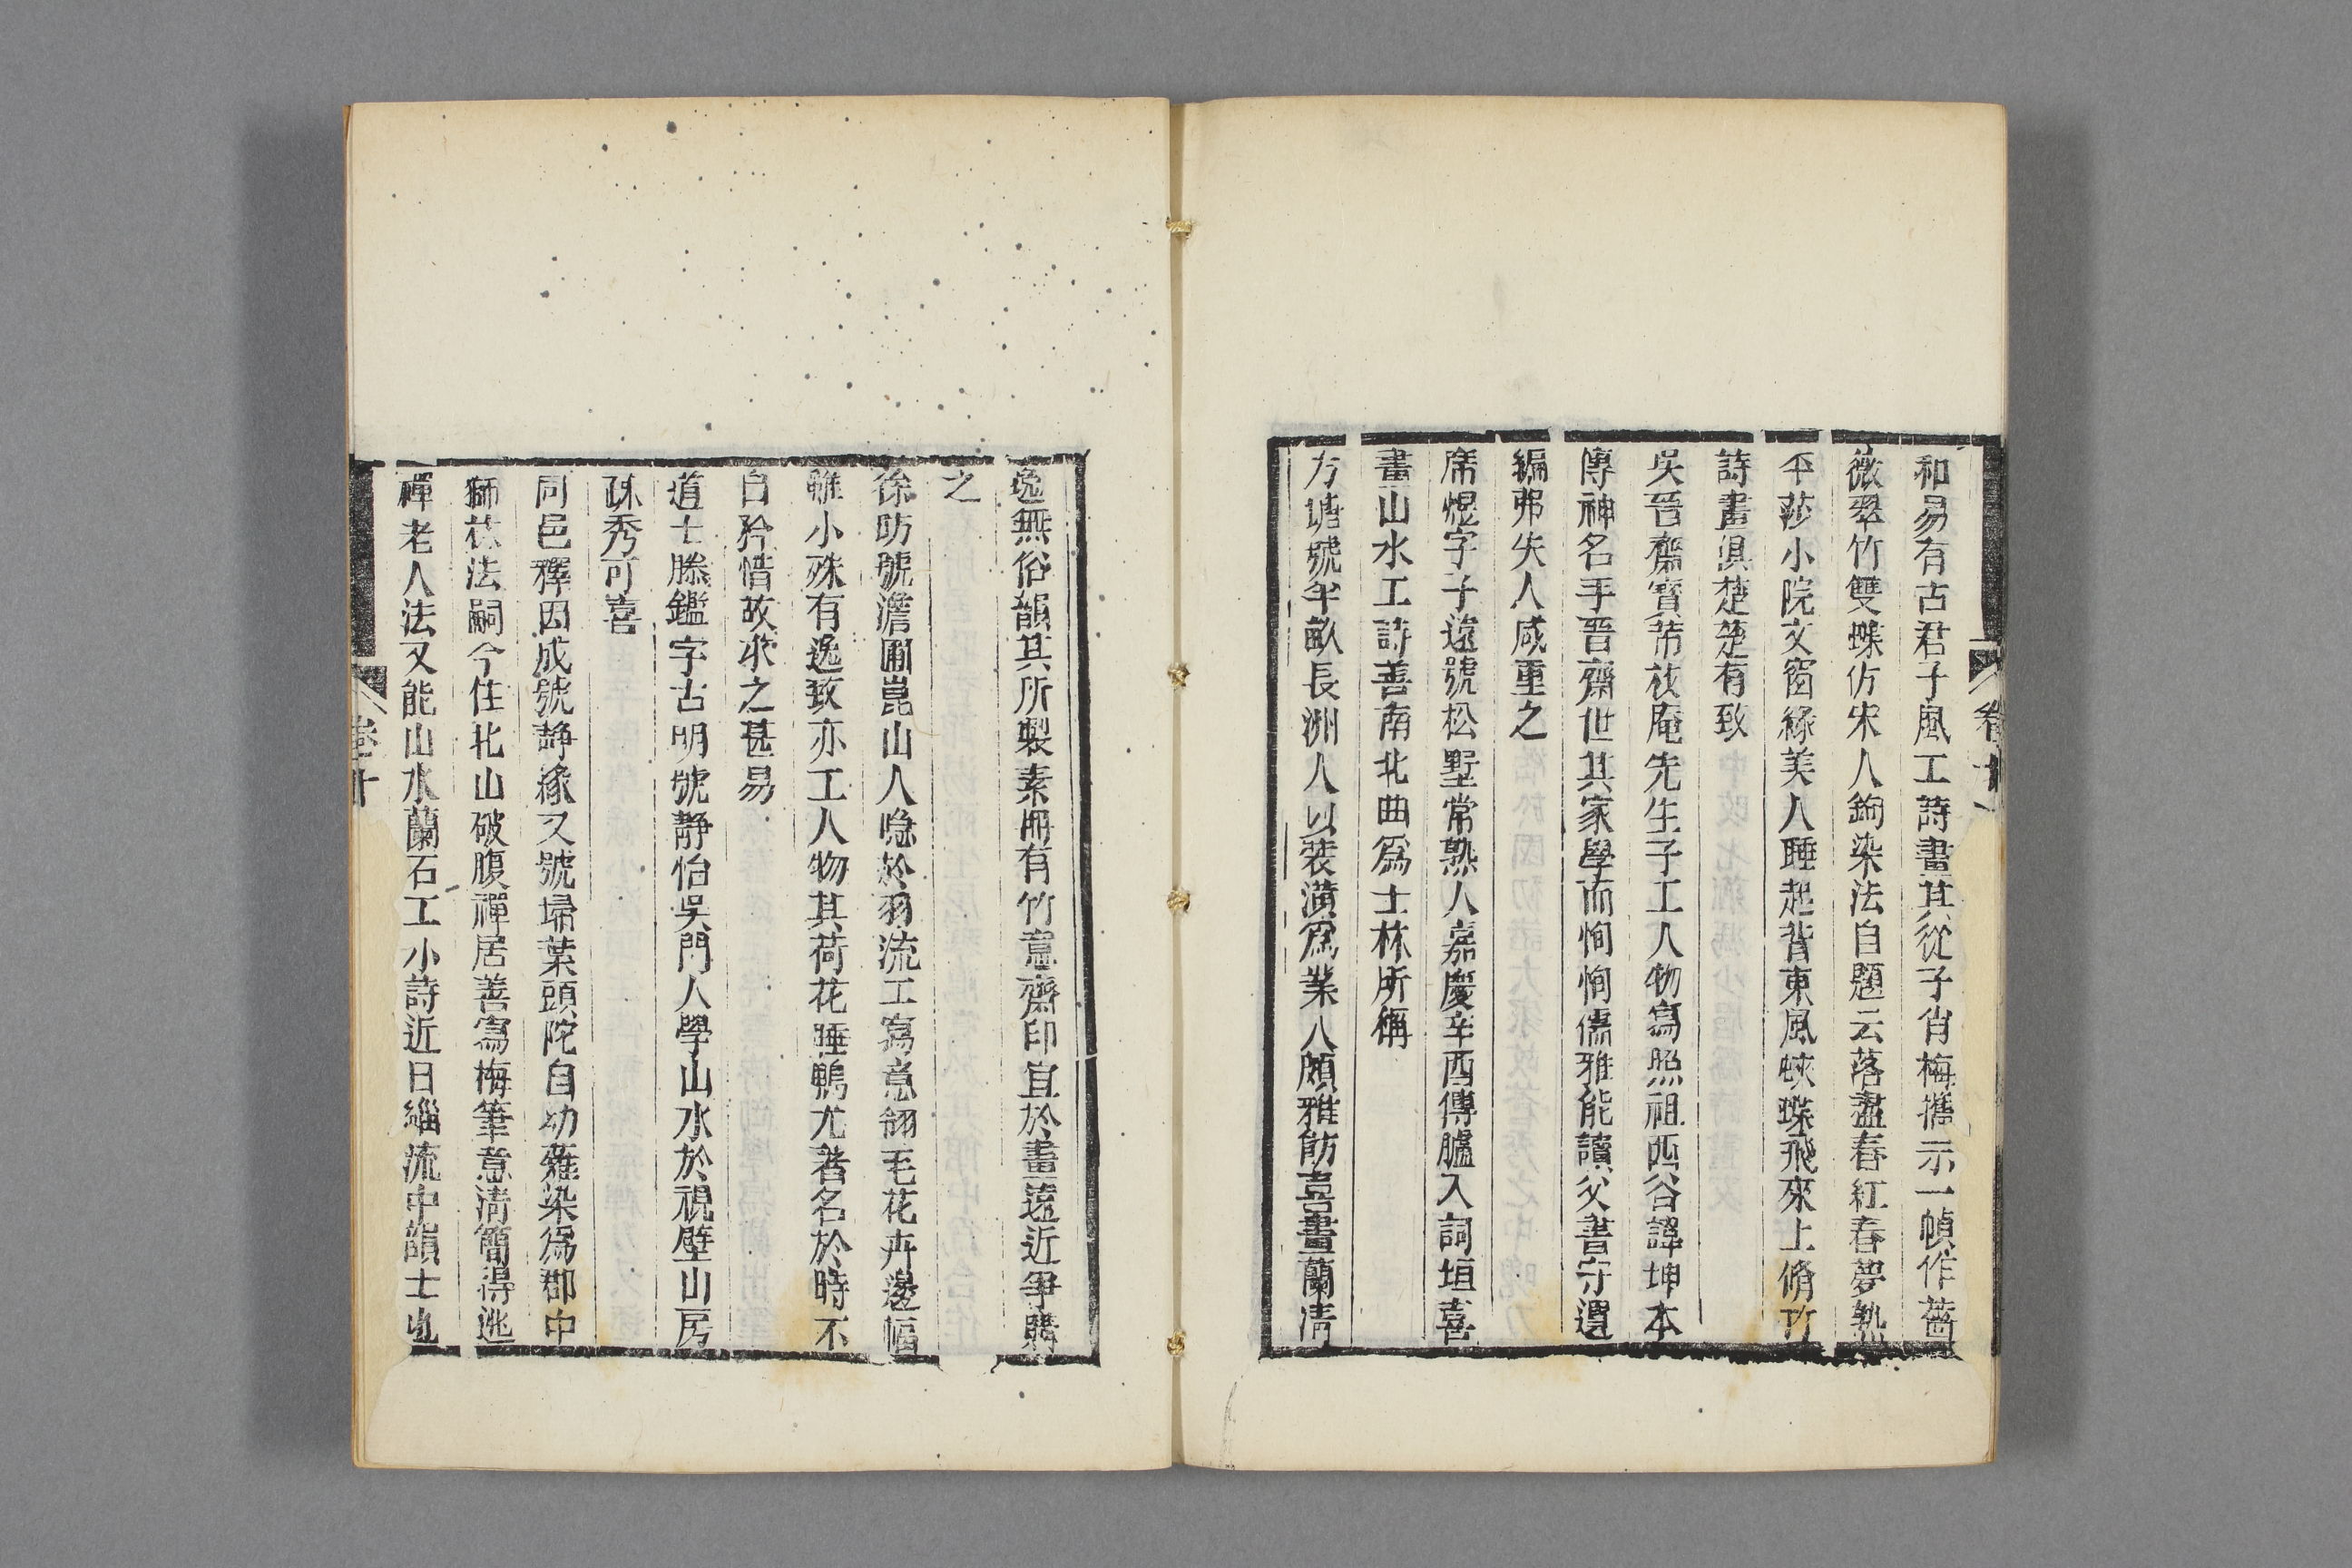 和易有古君子風工詩畫其從子肖梅攜示一幀作薔
薇翠竹雙蝶仿宋人鉤染法自題云落盡春紅春夢熟
平莎小院文窗綠美人睡起背東風蛺蝶飛來上脩竹
詩畫俱楚楚有致
吳晉齋寶芾荻庵先生子工人物寫照祖西谷諱坤本
傳神名手晉齋世其家學而恂恂儒雅能讀父書守遺
編弗失人咸重之
席煜字子遠號松墅常熟人嘉慶辛酉傳臚入詞垣喜
畫山水工詩善南北曲爲士林所稱
方塘號半畝長洲人以裝潢爲業人頗雅飭喜畫蘭淸
卷十
逸無俗韻其所製素册有竹意齋印宜於畫遠近爭購
之
徐昉號澹圃崑山人隱於羽流工寫意翎毛花卉邊幅
雖小殊有逸致亦工人物其荷花睡鴨尤著名於時不
自矜惜故求之甚易
道士滕鑑字古明號靜怡吳門人學山水於硯壁山房
疎秀可喜
同邑釋因成號靜緣又號埽葉頭陀自幼薙染爲郡中
獅林法嗣今住北山破腹禪居善寫梅筆意淸簡得逃
禪老人法又能山水蘭石工小詩近日緇流中韻士也
卷十